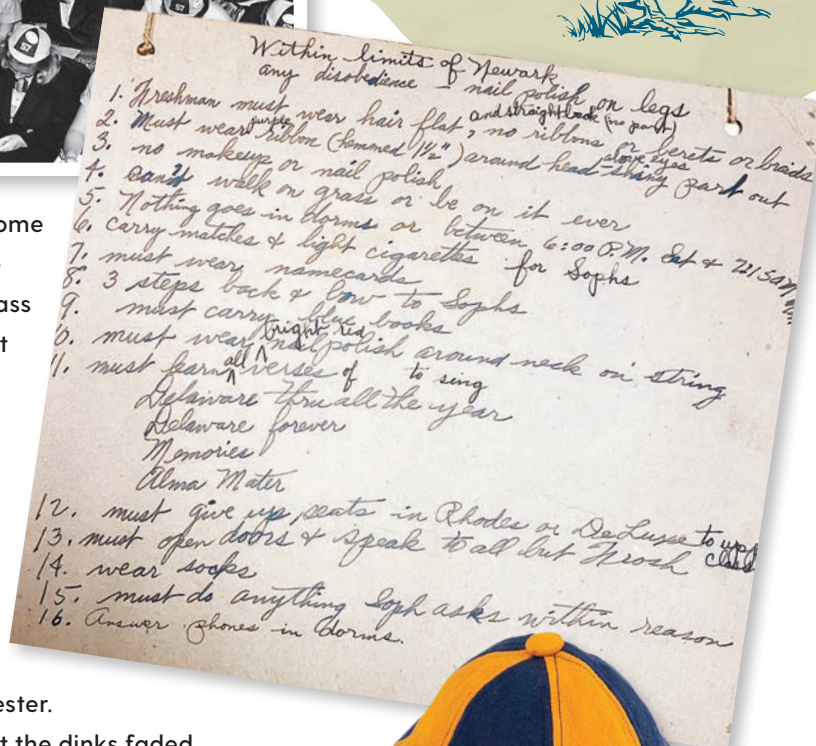 57
57
Within limits of Newark
any disobedience – nail polish on legs
1. Freshman must wear hair flat and straight back (no part), no ribbons or berets or braids
2. Must wear purple ribbon (hemmed 1 1/2") around head above eyes part out
3. no makeup or nail polish
4. walk on grass or be on it ever
5. Nothing goes in dorms or between 6:00 P.M. Sat &
6. carry matches & light cigarettes for Sophs
7. must wear namecards
8. 3 steps back & bow to Sophs
9. must carry blue books
10. must wear bright red nailpolish around neck on string
11. must learn all verses of to sing
Delaware thru all the year
Delaware forever
Memories
Alma Mater
12. must give up seats in Rhodes or DeLuxe to upp class
13. must open doors & speak to all but Frosh
14. wear socks
15. must do anything Soph asks within reason
16. Answer phones in dorms.
ome
ass
t
ester.
t the dinks faded